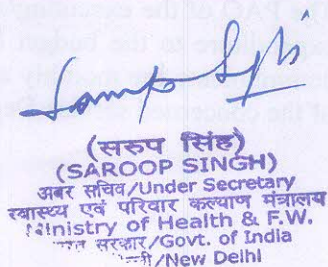 (सरुप सिंह)
(SAROOP SINGH)
अवर सचिव/Under Secretary
स्वास्थ्य एवं परिवार कल्याण मंत्रालय
Ministry of Health & F.W.
सरकार/Govt. of India
/New Delhi